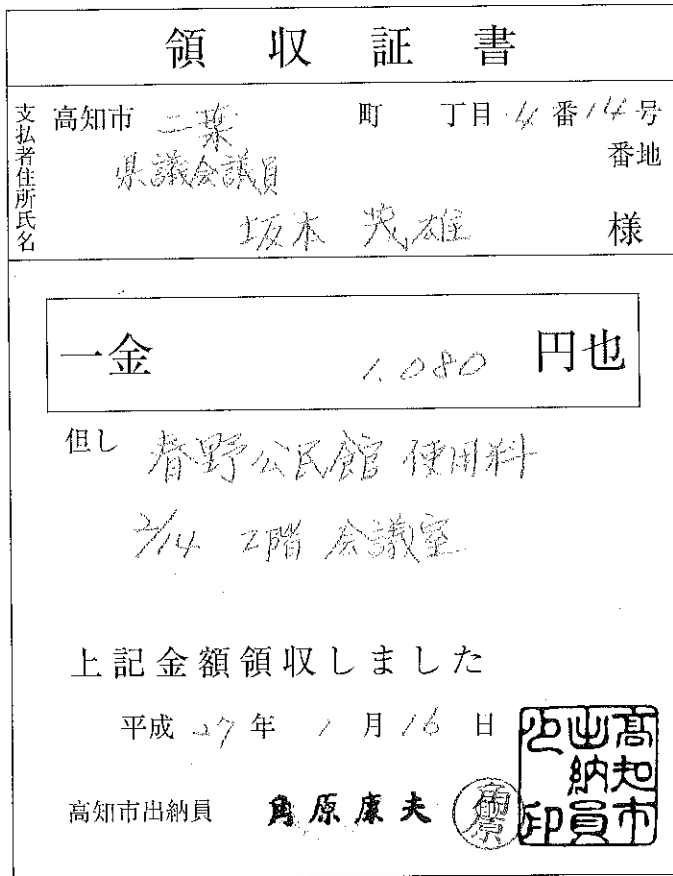 領収証書
支払者住所氏名
高知市 二葉 町 丁目 4 番 14 号
番地
県議会議員
坂本 茂雄 様
一金 1.080 円也
但し 春野公民館 使用料
2/14 2階 会議室
上記金額領収しました
平成 27 年 1 月 16 日
高知市出納員 角原康夫 角原
高知市出納員之印